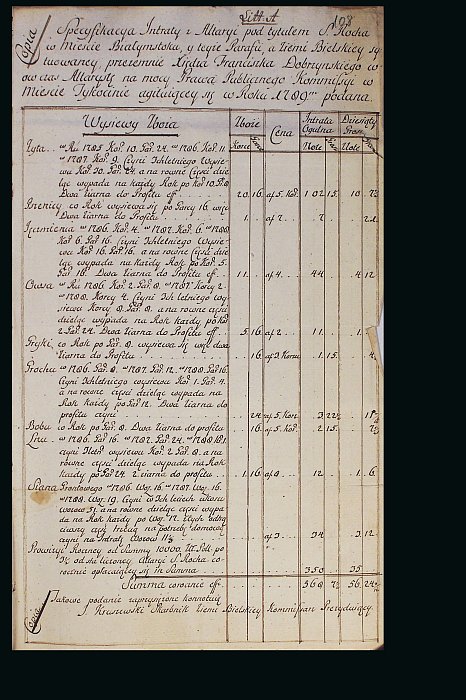 Litt: A
198
Copia
Specyfikacya Intraty z Altaryi pod tytułem S. Rocha
w Mieście Białymstoku, y teyże Parafii, a Ziemi Bielskiey sy
tuowaney, przezemnie Xiędza Franciszka Dobrzynskiego
wczas Altarystę na mocy Prawa Publicznego Kommissyi w
Mieście Tykocinie agituiącey się w Roku 1789 podana.
Wysiewy Zboża
Zboże
Cena
Intrata Ogulna
Dziesiąty Grosz
Korce
Złote
Złote
Żyta w Ru 1785 Kor. 10. Gar. 24. w 1786. Kor. 11.
w 1787. Kor. 9. Czyni 3chletniego Wysie-
wu Kor. 30. Gar. 24. a na rowne Części dzie-
ląc wypada na każdy Rok po Kor. 10. G. 8.
Dwa Ziarna do Profitu eff. 20. 16. a f 5. Kor. 102 15. 10. 7½
Pszenicy co Rok wysiewa się po Garcy 16. więc
Dwa Ziarna do Profitu 1. a f 7. 7. 21.
Jęczmienia w 1786. Kor. 4. w 1787. Kor. 6. w 1788.
Kor. 6. Gar. 16. Czyni 3chletniego Wysie-
wu Kor. 16. Gar. 16. a na rowne Części dzie-
ląc wypada na każdy Rok po Kor. 5.
Gar. 16. Dwa Ziarna do Profitu eff. 11. a f 4. 44. 4. 12
Owsa w Ru 1786. Kor. 2. Gar. 8. w 1787. Korcy 2.
w 1788. Korcy 4. Czyni 3ch letniego Wy-
siewu Korcy 8. Gar. 8. a na rowne części
dzieląc wypada na Rok każdy po Kor.
2. Gar. 24. Dwa Ziarna do Profitu eff. 5. 16. a f 2. 11. 1. 3
Gryki co Rok po Gar. 8. wysiewa się więc dwa
Ziarna do Profitu 16. a f 3. Korzec 1. 15. 4.
Grochu w 1786. Gar. 8. w 1787. Gar. 12. w 1788. Gar. 16.
Czyni 3chletniego wysiewu Kor. 1. Gar. 4.
a na rowne części dzieląc wypada na
Rok każdy po Gar. 12. Dwa Ziarna do
profitu czyni 24. a f 5. Kor. 3. 22½
Bobu co Rok po Gar. 8. Dwa Ziarna do profitu 16. a f 5. Kor. 2. 15. 7½
Lnu w 1786. Gar. 16. w 1787. Gar. 24. w 1788.
czyni 3letni wysiewu Kor. 2. Gar. 8. a na
rowne części dzieląc wypada na Rok
każdy po Gar. 24. 2 Ziarna do profitu 1. 16. a f 8. 12. 1. 6.
Siana Grontowego w 1786. Woz. 16. w 1787. Woz. 16.
w 1788. Woz. 19. Czyni w 3ch leciech
wozow 51. a na rowne części dzieląc wypa-
da na Rok każdy po Woz. 17. z tych odtrą-
ciwszy część trzecią na potrzeby domowe
czyni na Intratę Wozow 11⅓ a f 3. 34. 3. 12.
Prowizyi Roczney od Summy 10000. Zł. Pol. po
3½ od sta liczoney Altaryi S. Rocha co-
rocznie opłacaiącey się in Summa 350. 35
Summa corocznie eff. 568. 7½ 56. 24
Takowe podanie zaprzysiężone konnotuię
J. Kraszewski Skarbnik Ziemi Bielskiey Kommissarz Prezyduiący.
Copia